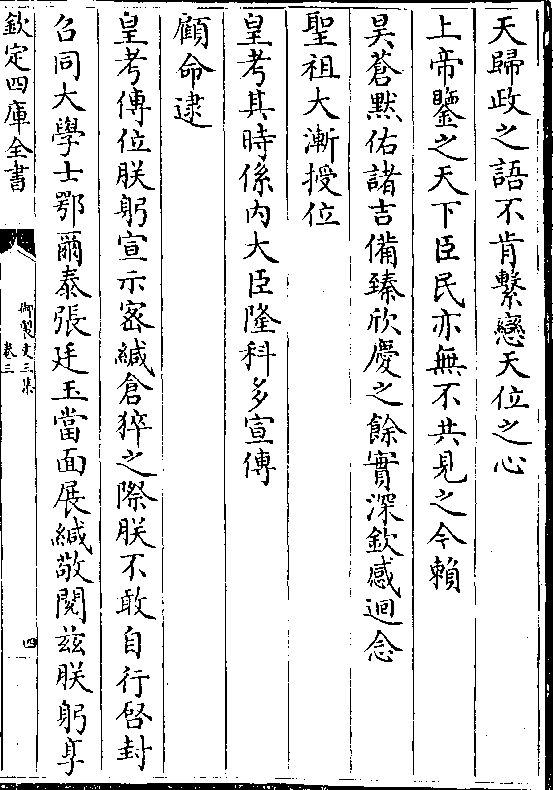 天歸政之語不肯繫戀天位之心
上帝鑒之天下臣民亦無不共見之今賴
昊蒼黙佑諸吉備臻欣慶之餘實深欽感迴念
聖祖大漸授位
皇考其時係内大臣隆科多宣傳
顧命逮
皇考傳位朕躬宣示密緘倉猝之際朕不敢自行啓封
召同大學士鄂爾泰張廷玉當面展緘敬閲兹朕躬享
欽定四庫全書
御製文三集
卷三
四